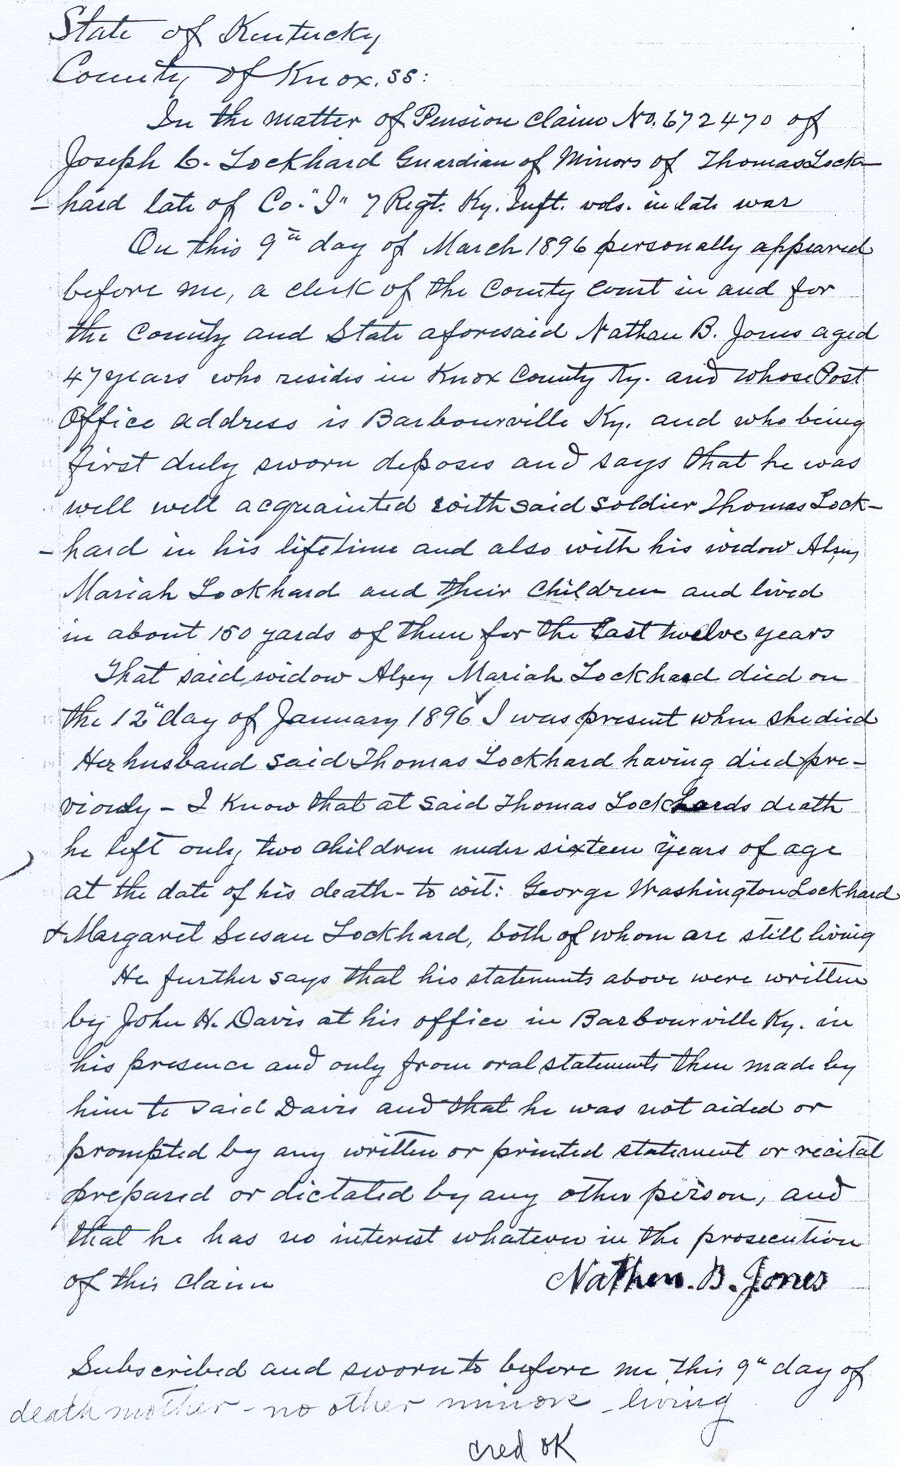 State of Kentucky
County of Knox, ss:
In the matter of Pension claim No. 672470 of
Joseph C. Lockhard Guardian of Minors of Thomas Lock-
-hard late of Co. "I" 7 Regt. Ky. Inft. vols. in late war
On this 9th day of March 1896 personally appeared
before me, a clerk of the County Court in and for
the County and State aforesaid Nathan B. Jones aged
47 years who resides in Knox County Ky. and whose Post
Office address is Barbourville Ky. and who being
first duly sworn deposes and says that he was
well well acquainted with said soldier Thomas Lock-
-hard in his lifetime and also with his widow Alzey
Mariah Lockhard and their children and lived
in about 150 yards of them for the last twelve years
That said widow Alzey Mariah Lockhard died on
the 12" day of January 1896 I was present when she died
Her husband said Thomas Lockhard having died pre-
viously - I know that at said Thomas Lockhards death
he left only two children under sixteen years of age
at the date of his death - to wit: George Washington Lockhard
& Margaret Susan Lockhard, both of whom are still living
He further says that his statements above were written
by John H. Davis at his office in Barbourville Ky. in
his presence and only from oral statements then made by
him to said Davis and that he was not aided or
prompted by any written or printed statement or recital
prepared or dictated by any other person, and
that he has no interest whatever in the prosecution
of this claim Nathen. B. Jones
Subscribed and sworn to before me this 9" day of
death mother - no other minors living
cred OK